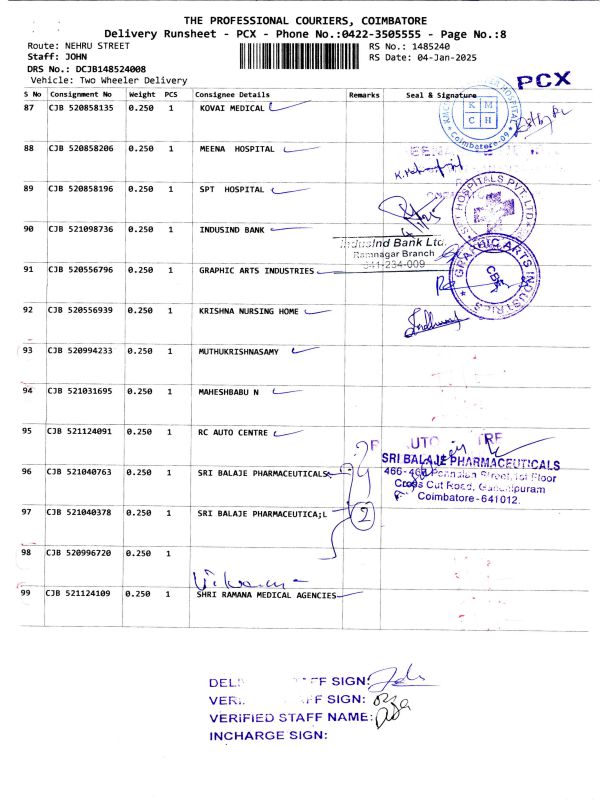 THE PROFESSIONAL COURIERS, COIMBATORE
Delivery Runsheet - PCX - Phone No.:0422-3505555 - Page No.:8
Route: NEHRU STREET RS No.: 1485240
Staff: JOHN RS Date: 04-Jan-2025
DRS No.: DCJB148524008
Vehicle: Two Wheeler Delivery
PCX
S No Consignment No Weight PCS Consignee Details Remarks Seal & Signature
87 CJB 520858135 0.250 1 KOVAI MEDICAL
KMCH
Coimbatore-09
88 CJB 520858206 0.250 1 MEENA HOSPITAL
89 CJB 520858196 0.250 1 SPT HOSPITAL
HOSPITALS PVT. LTD.
90 CJB 521098736 0.250 1 INDUSIND BANK
IndusInd Bank Ltd.
Ramnagar Branch
641-234-009
91 CJB 520556796 0.250 1 GRAPHIC ARTS INDUSTRIES
GRAPHIC ARTS INDUSTRIES
CBE
92 CJB 520556939 0.250 1 KRISHNA NURSING HOME
93 CJB 520994233 0.250 1 MUTHUKRISHNASAMY
94 CJB 521031695 0.250 1 MAHESHBABU N
95 CJB 521124091 0.250 1 RC AUTO CENTRE
SRI BALAJE PHARMACEUTICALS
96 CJB 521040763 0.250 1 SRI BALAJE PHARMACEUTICALS
Cross Cut Road, Gandhipuram
Coimbatore-641012.
97 CJB 521040378 0.250 1 SRI BALAJE PHARMACEUTICA;L
2
98 CJB 520996720 0.250 1
99 CJB 521124109 0.250 1 SHRI RAMANA MEDICAL AGENCIES
SIGN:
SIGN:
VERIFIED STAFF NAME:
INCHARGE SIGN: